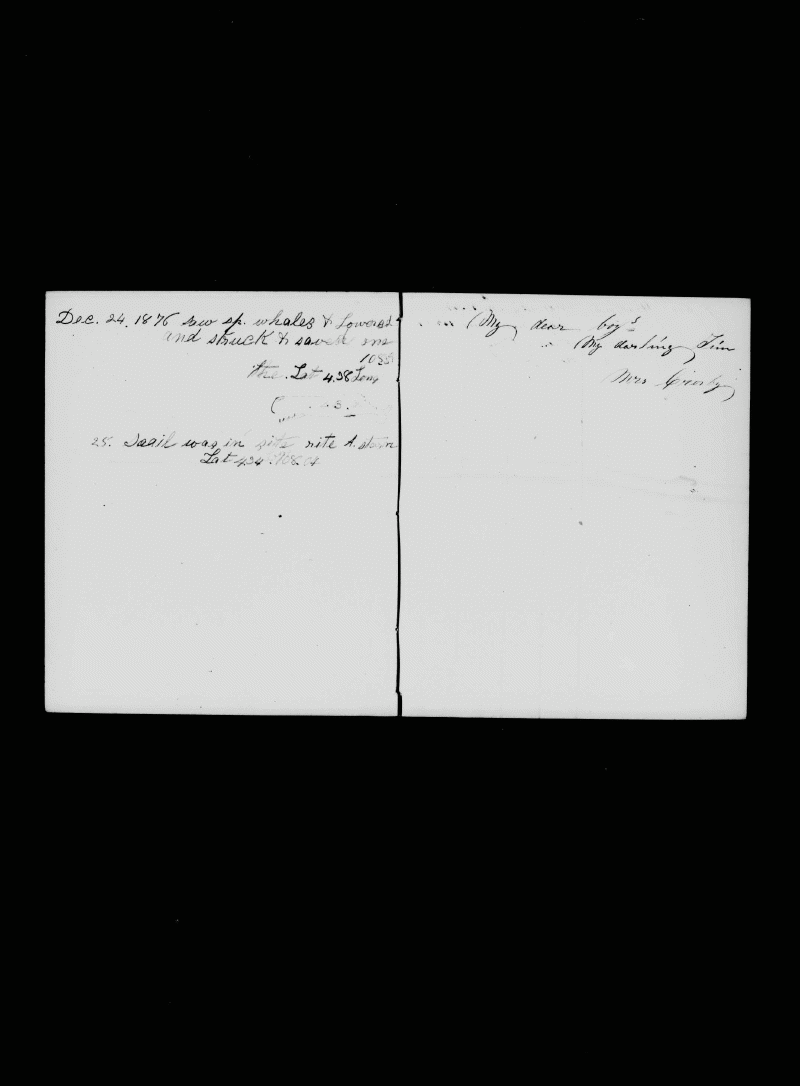 Dec. 24. 1876 saw sp. whales & Lowered
and struck & saved one
the Lat 4.38 Long
25. Saail was in site nite A. dorn
Lat 4.34
(My dear boy's
(My darling Jim
Mrs Crosby)